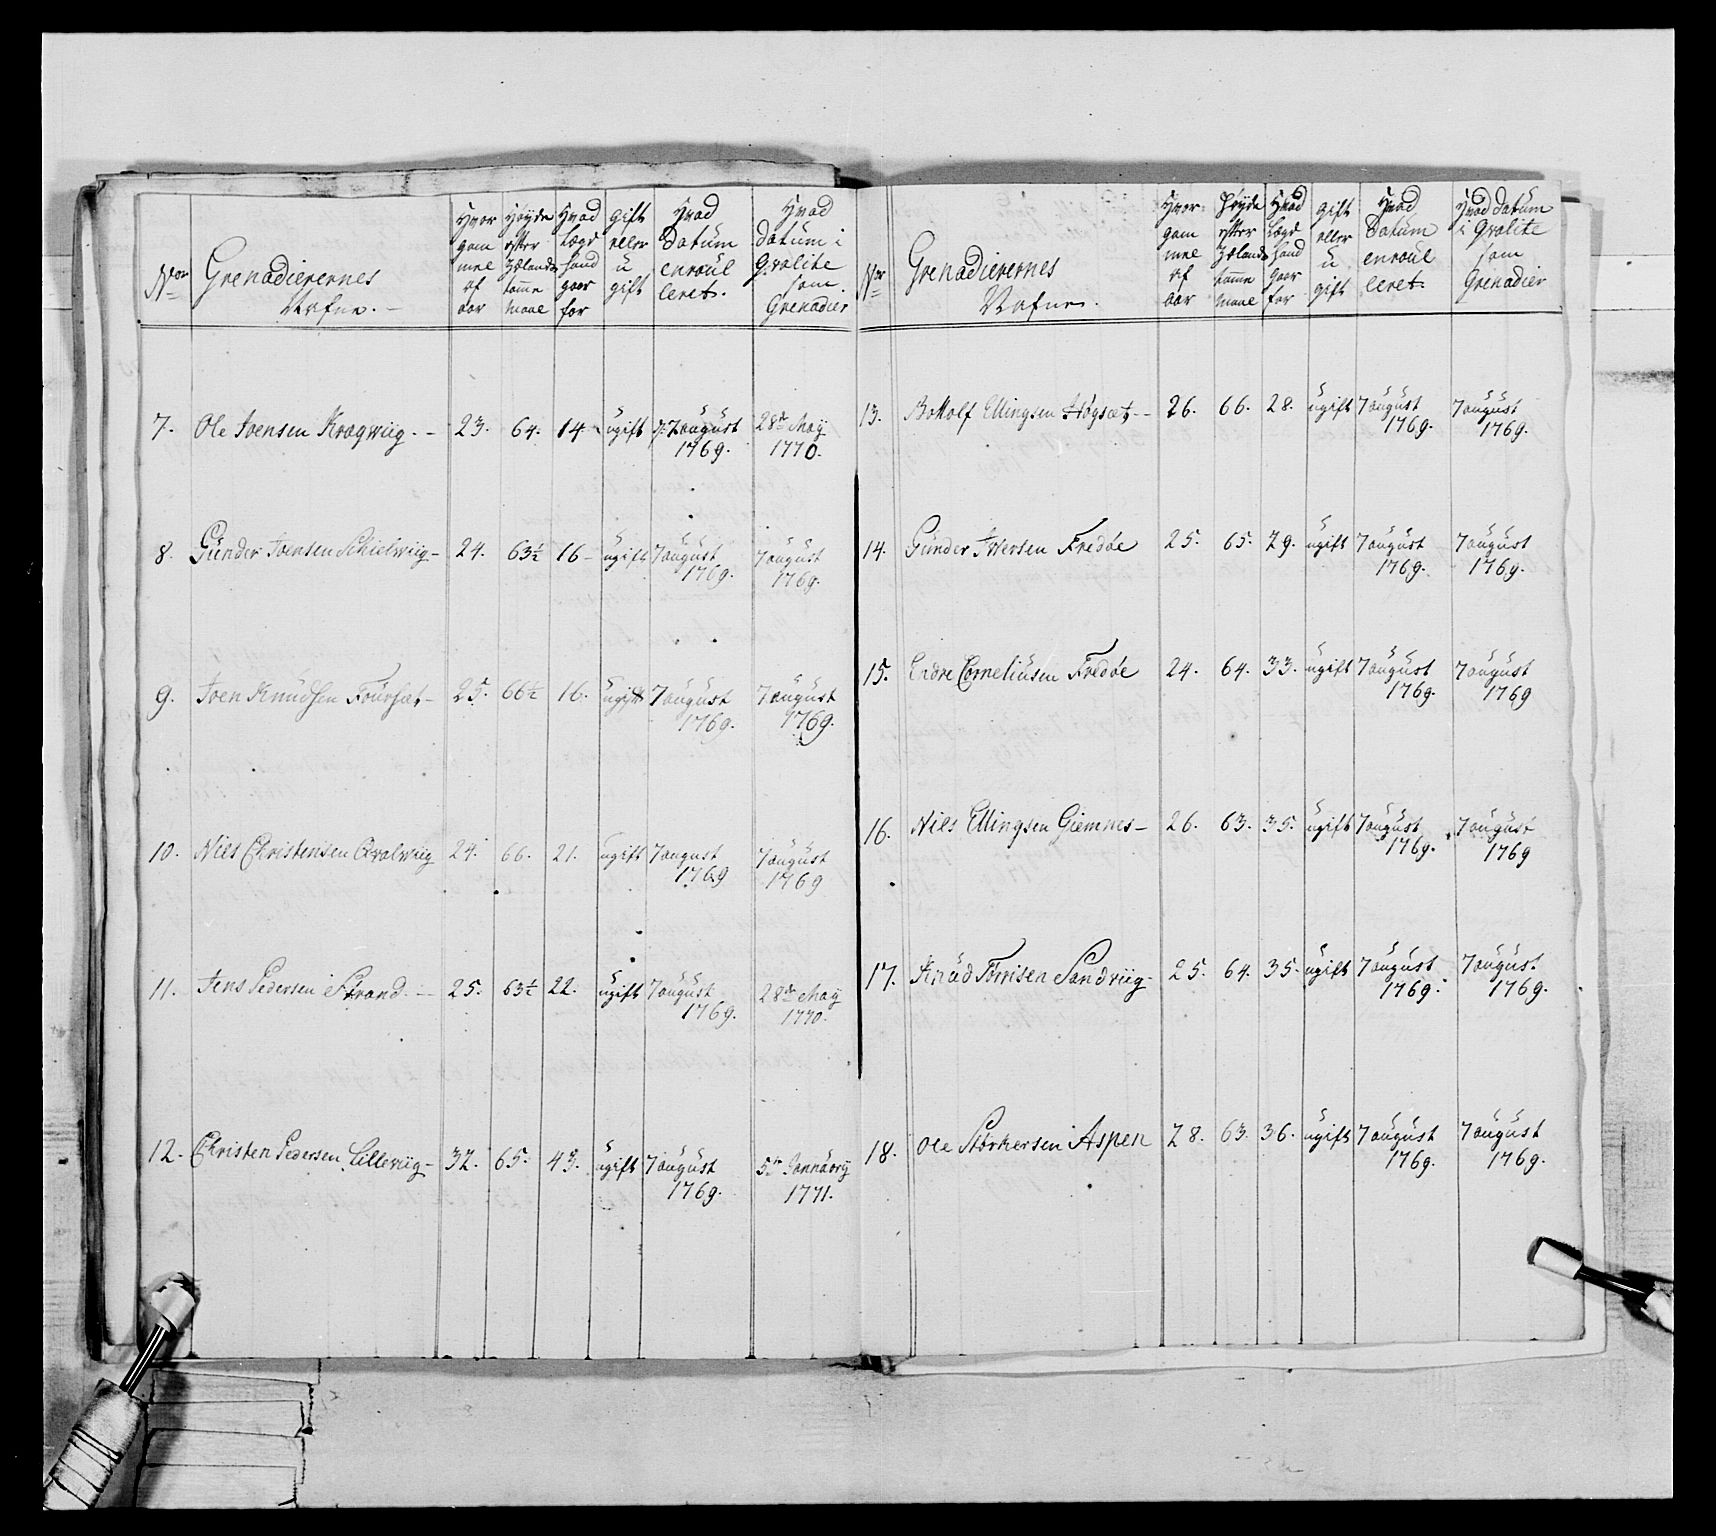 No.
Grenadierernes
Nafne.
Hvor gam mel af aar
Høyde efter Zelands tomme maal
Hvad Lægd hand gaar for
gift eller u gift
Hvad Datum enroul leret.
Hvad datum i Qvalite som Grenadier
7. Ole Joensen Kragwiig. - 23. 64. 14 ugift 7 august 1769. 28de May 1770.
8. Gunder Joensen Schielwiig - 24. 63½ 16 - ugift 7 august 1769. 7 august 1769.
9. Joen Knudsen Foursæt - 25. 66½ 16. ugift 7 august 1769. 7 august 1769.
10. Niels Christensen Qvalwiig 24. 66. 21. ugift 7 august 1769 7 august 1769
11. Jens Pedersen Strand. - 25. 63½ 22. ugift 7 august 1769. 28de May 1770.
12. Christen Pedersen Lilleviig - 32. 65. 43. ugift 7 august 1769. 5te Jannuary 1771.
No.
Grenadierernes
Nafne.
Hvor gam mel af aar
Høyde efter Zelands tomme maal
Hvad Lægd hand gaar for
gift eller u gift
Hvad Datum enroul leret.
Hvad datum i Qvalite som Grenadier
13. Bottolf Ellingsen Høgsæt - 26. 66. 28. ugift 7 august 1769. 7 august 1769.
14. Gunder Iversen Fredøe 25. 65. 29. ugift 7 august 1769. 7 august 1769.
15. Endre Corneliusen Fredøe 24. 64. 33. ugift 7 august 1769. 7 august 1769
16. Niels Ellingsen Giemnes - 26. 63. 35. ugift 7 august 1769. 7 august 1769
17. Knud Torrisen Sandviig - 25. 64. 35. ugift 7 august 1769. 7 august 1769.
18. Ole Størkersen Aspen 28. 63. 36. ugift 7 august 1769. 7 august 1769.